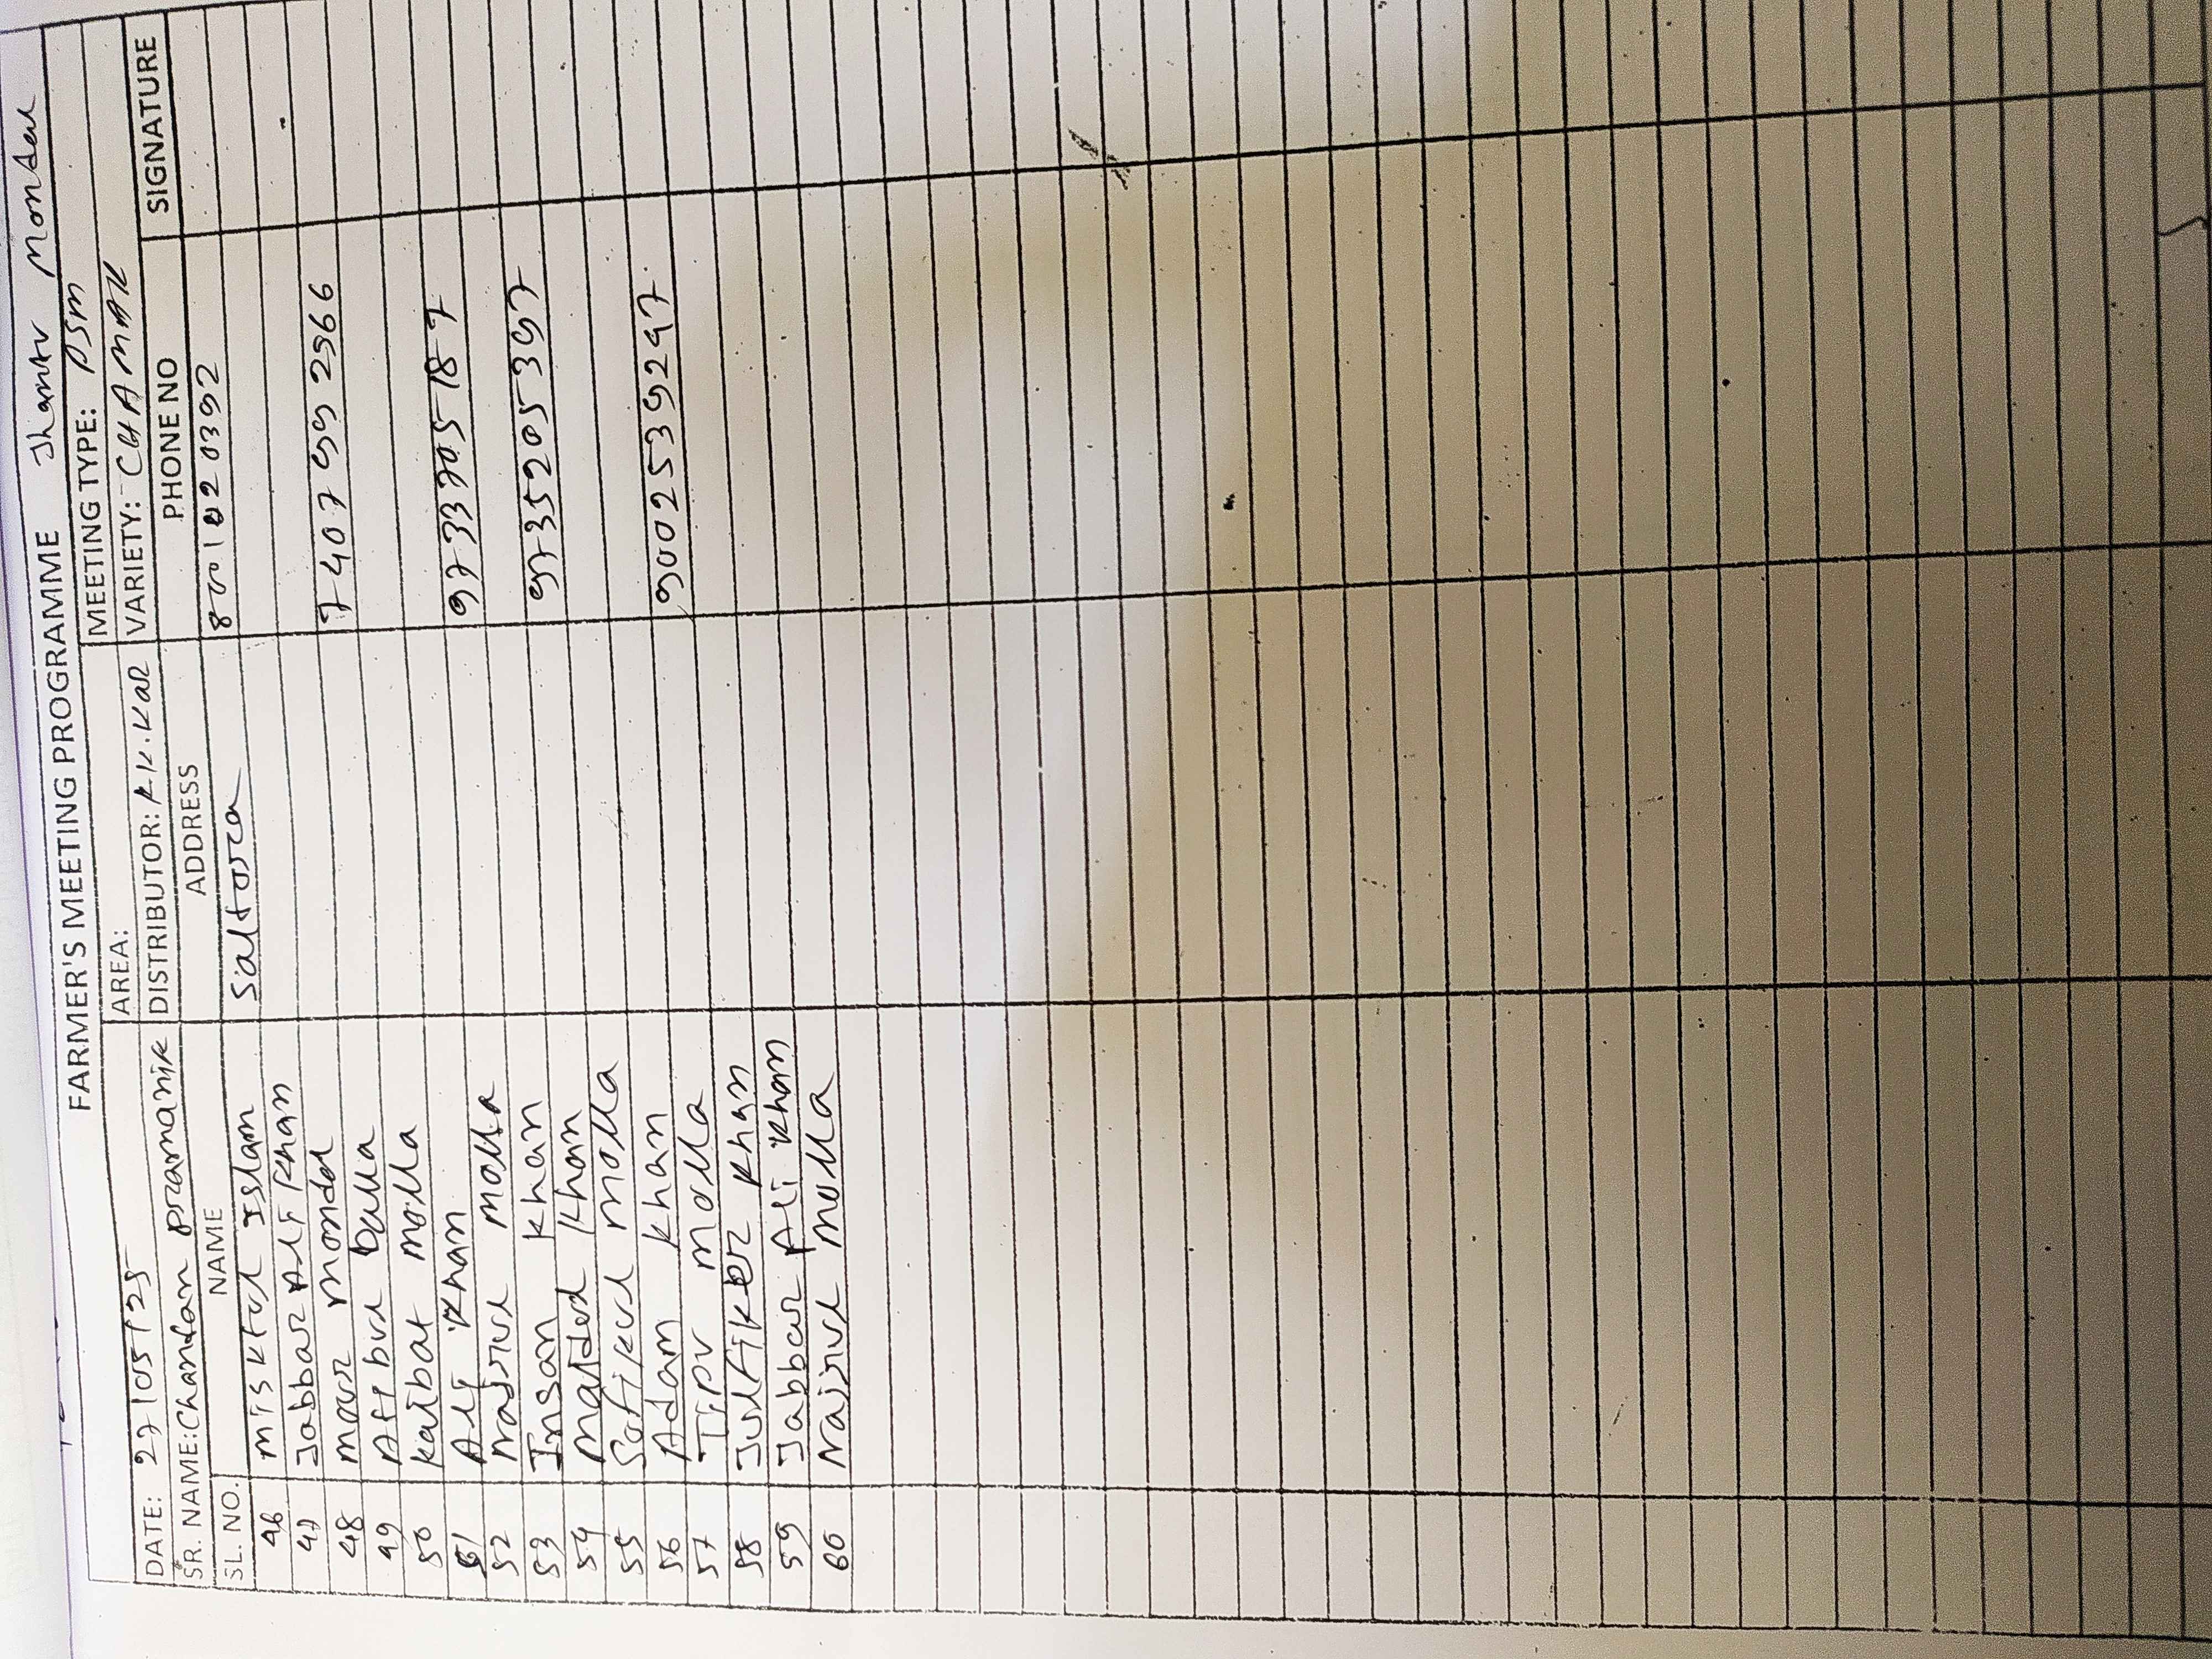 Jhantu Mondal
FARMER'S MEETING PROGRAMME
AREA: MEETING TYPE: PSM
DATE: 27/05/25 DISTRIBUTOR: K.K. Kar VARIETY: CHAMAK
SR. NAME: Chandan pramanik
SL. NO. NAME ADDRESS PHONE NO SIGNATURE
46 Mis kful Islam Saltora 8001020392
47 Jabbar Ali Khan
48 Mour Mondal 7407992566
49 Aft bul
50 Kalbat Molla
51 Ali Khan 9733705187
52 Najrul Molla
53 Insan Khan 9735205397
54 Khan
55 Sofikul Molla
56 Adam Khan 9002539247
57 Tipu Molla
58 Julfiker Khan
59 Jabbar Ali Khan
60 Najrul Molla